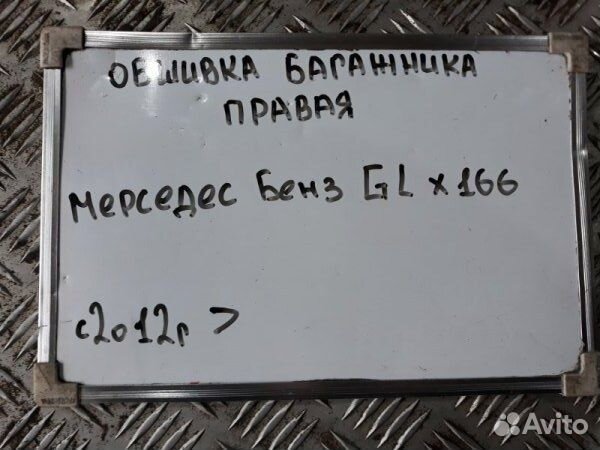 ОБШИВКА БАГАЖНИКА
ПРАВАЯ
Мерседес Бенз GL x166
с2012г >
Avito